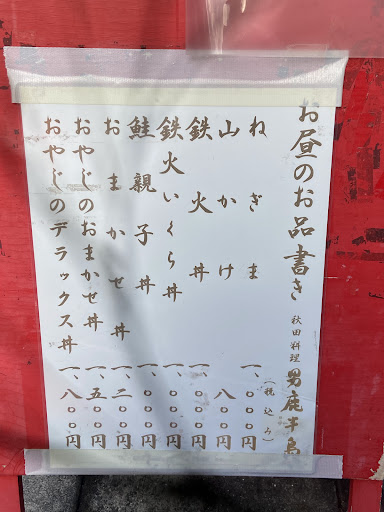 お昼のお品書き 秋田料理 男鹿半島
(税込み)
ねぎま 一、〇〇〇円
山かけ 八〇〇円
鉄火丼 一、〇〇〇円
鉄火いくら丼 一、〇〇〇円
鮭親子丼 一、〇〇〇円
おまかせ丼 一、二〇〇円
おやじのおまかせ丼 一、五〇〇円
おやじのデラックス丼 一、八〇〇円